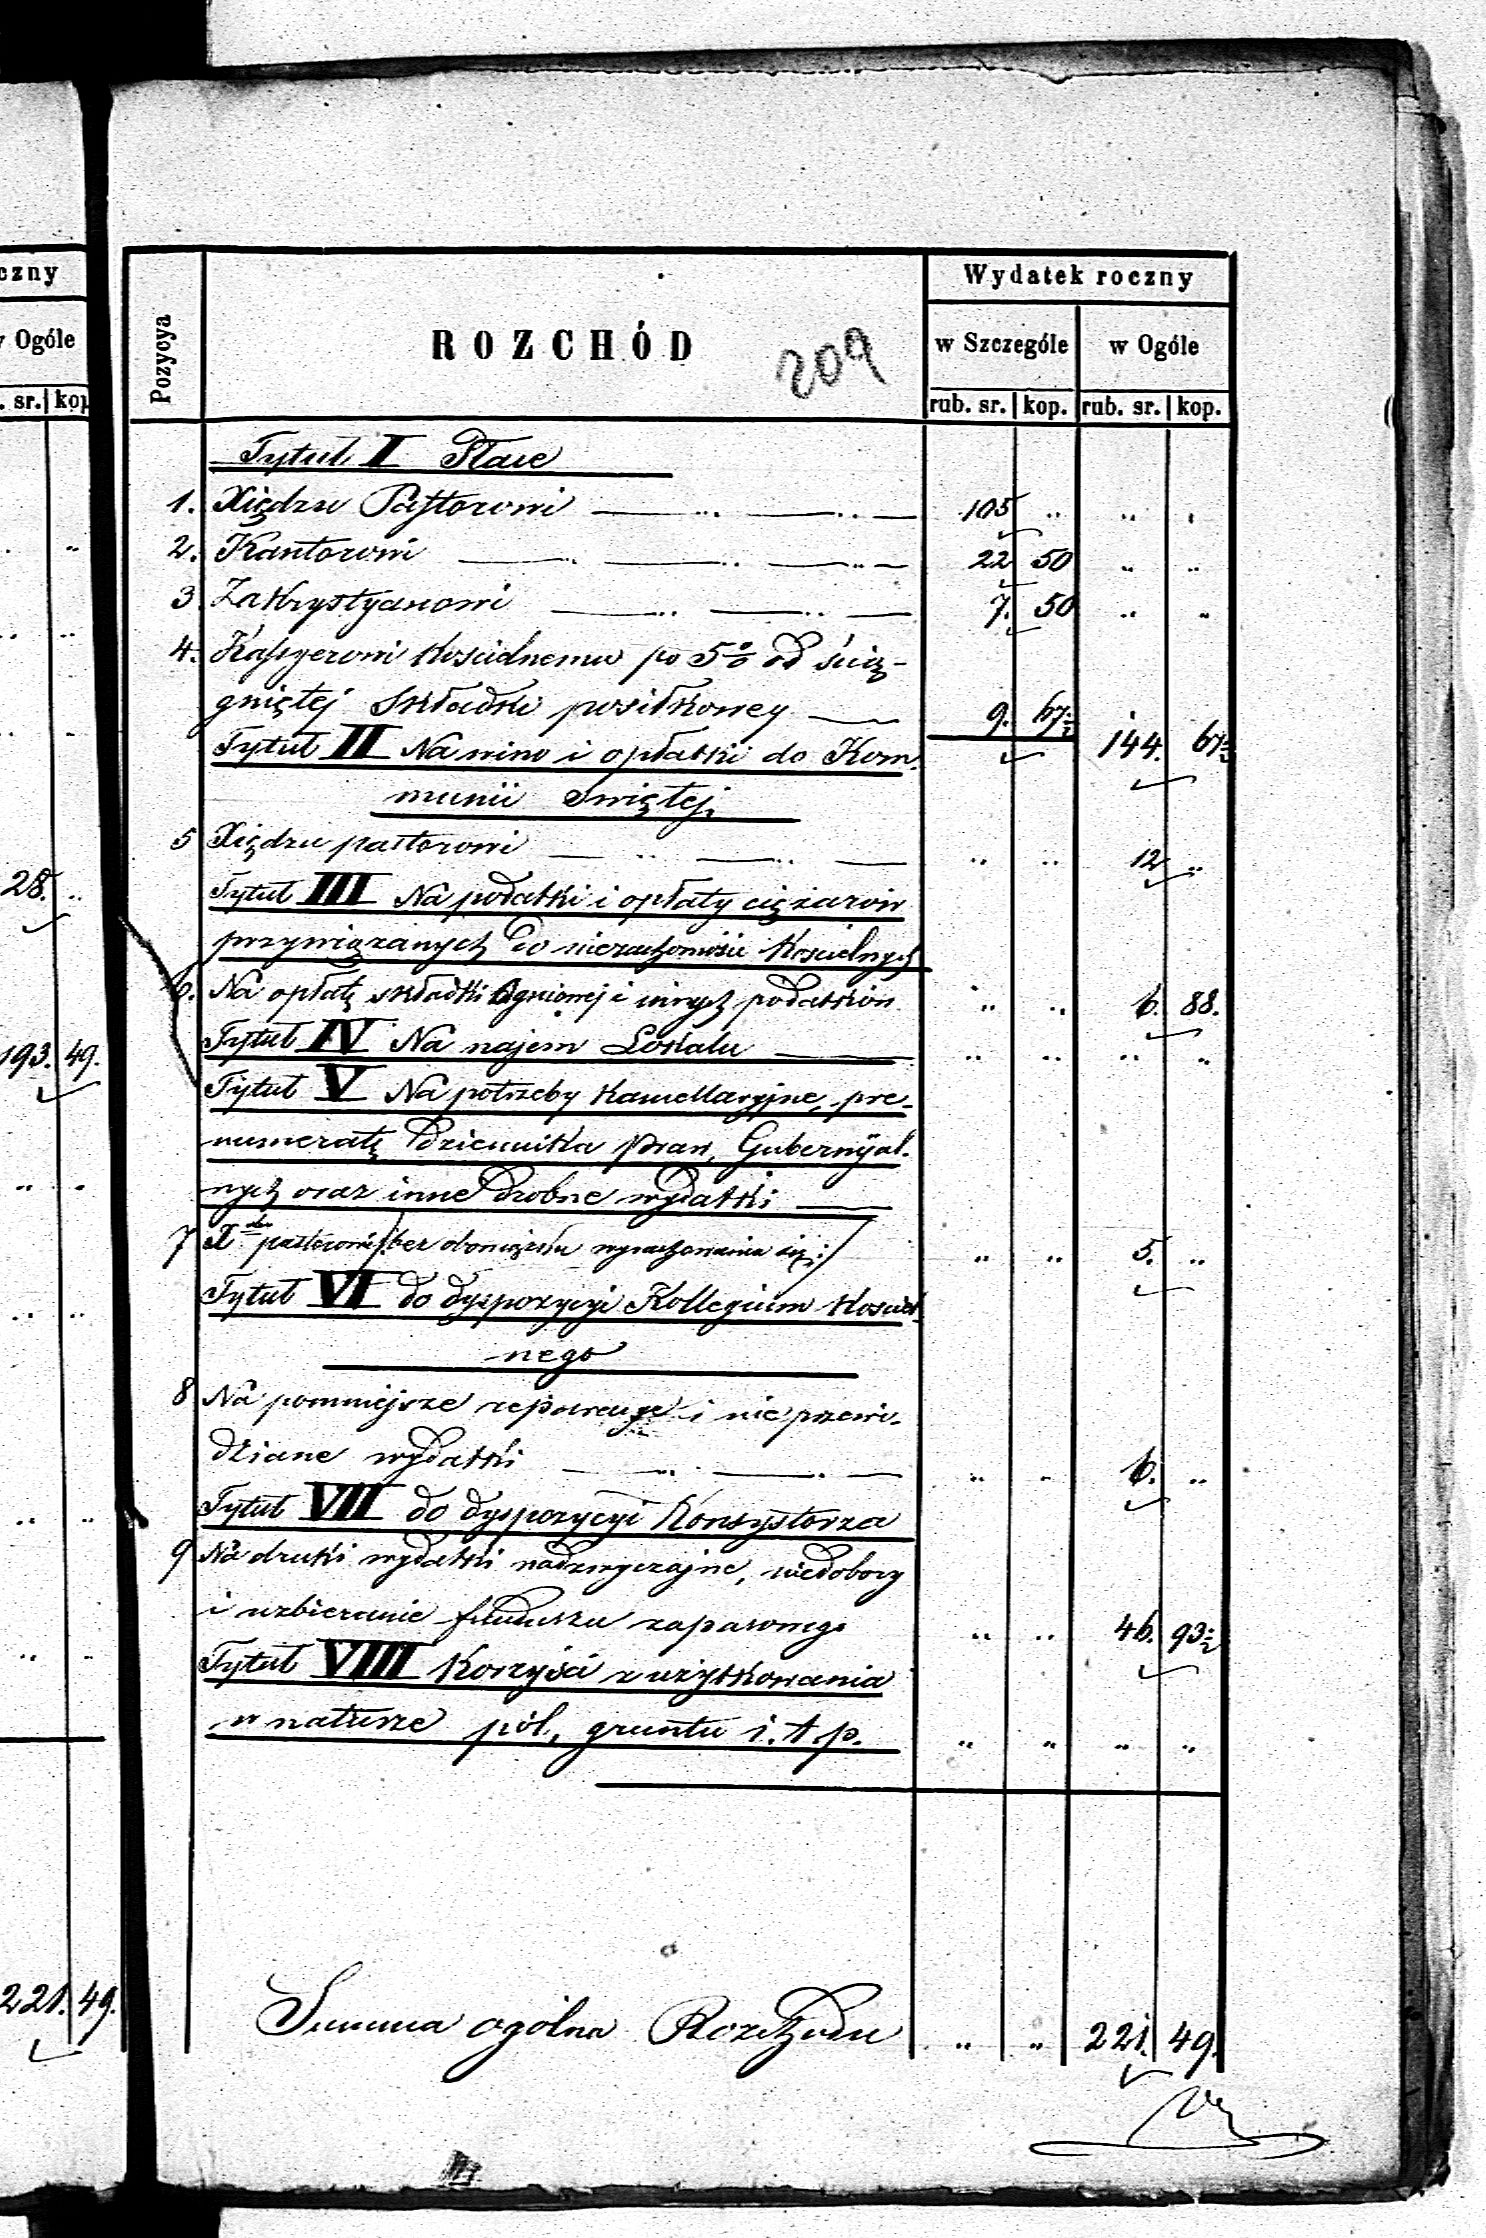 czny
w Ogóle
. sr. kop
28. ..
193. 49.
221. 49.
Pozycya
ROZCHÓD
209
Wydatek roczny
w Szczególe w Ogóle
rub. sr. kop. rub. sr. kop.
Tytuł I Płace
1. Xiędzu Pastorowi 105 .. .. ..
2. Kantorowi 22 50 .. ..
3. Zakrystyanowi 7. 50 .. ..
4. Kassyerowi Kościelnemu po 5% od ścią-
gniętej Składki posiłkowey 9. 67½ 144. 67½
Tytuł II Na wino i opłatki do Kom-
munii Swiętej
5 Xiędzu pastorowi .. .. 12 ..
Tytuł III Na podatki i opłaty ciężarów
przywiązanych do nieruchomości Kościelnych
6. Na opłatę składki Ogniowej i innych podatków .. .. 6. 88.
Tytuł IV Na najem Lokalu .. .. .. ..
Tytuł V Na potrzeby Kancellaryjne, pre-
numeratę Dziennika Praw, Gubernijal-
nych oraz inne drobne wydatki
7 X dzu pastorowi /: bez obowiązku wyrachowania się :/ .. .. 5. ..
Tytuł VI do dyspozycyi Kollegium Kościel-
nego
8 Na pomniejsze reperacye i nieprzewi-
dziane wydatki .. .. 6. ..
Tytuł VII do dyspozycyi Konsystorza
9 Na druki wydatki nadzwyczajne, niedobory
i uzbieranie funduszu zapasowego .. .. 46. 93½
Tytuł VIII Korzyści z użytkowania
w naturze pól, gruntu i. t. p. .. .. .. ..
Summa ogólna Rozchodu .. .. 221. 49.